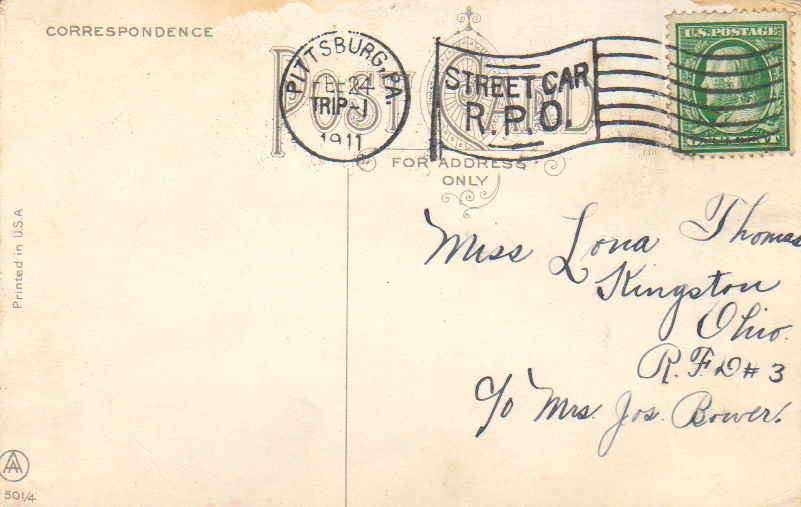 CORRESPONDENCE
POST CARD
PITTSBURG, PA.
FEB 24
TRIP-1
1911
STREET CAR
R.P.O.
U.S. POSTAGE
FOR ADDRESS
ONLY
Printed in U.S.A
Miss Lona Thomas
Kingston
Ohio.
R.F.D # 3
c/o Mrs. Jos. Bower.
501/4